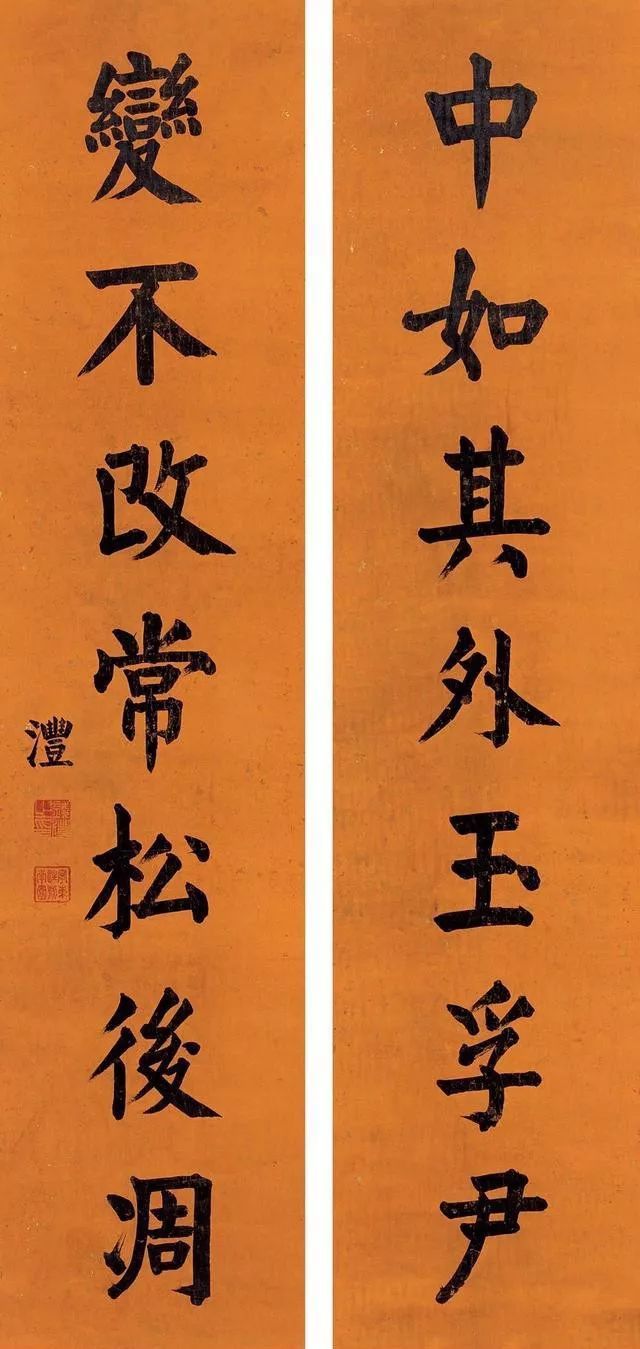 中如其外玉孚尹
變不改常松後凋
灃